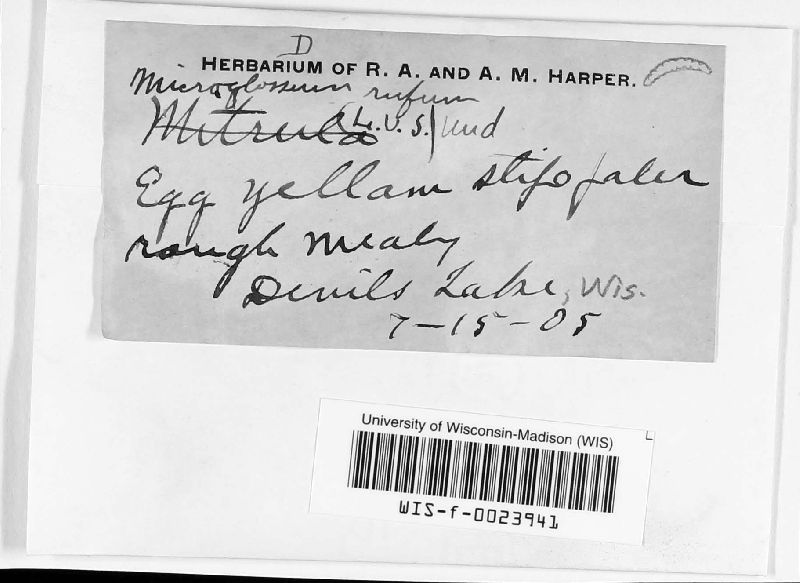 D
HERBARIUM OF R. A. AND A. M. HARPER.
Microglossum rufum
Mitrula (L.V.S.) Und
Egg yellow stipe paler
rough mealy
Devils Lake, Wis.
7-15-05
University of Wisconsin-Madison (WIS)
WIS-f-0023941